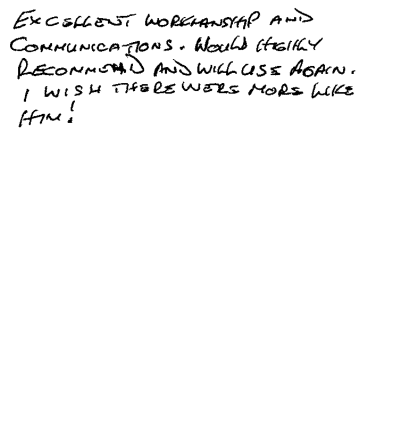 EXCELLENT WORKMANSHIP AND
COMMUNICATIONS. WOULD HIGHLY
RECOMMEND AND WILL USE AGAIN.
I WISH THERE WERE MORE LIKE
HIM!